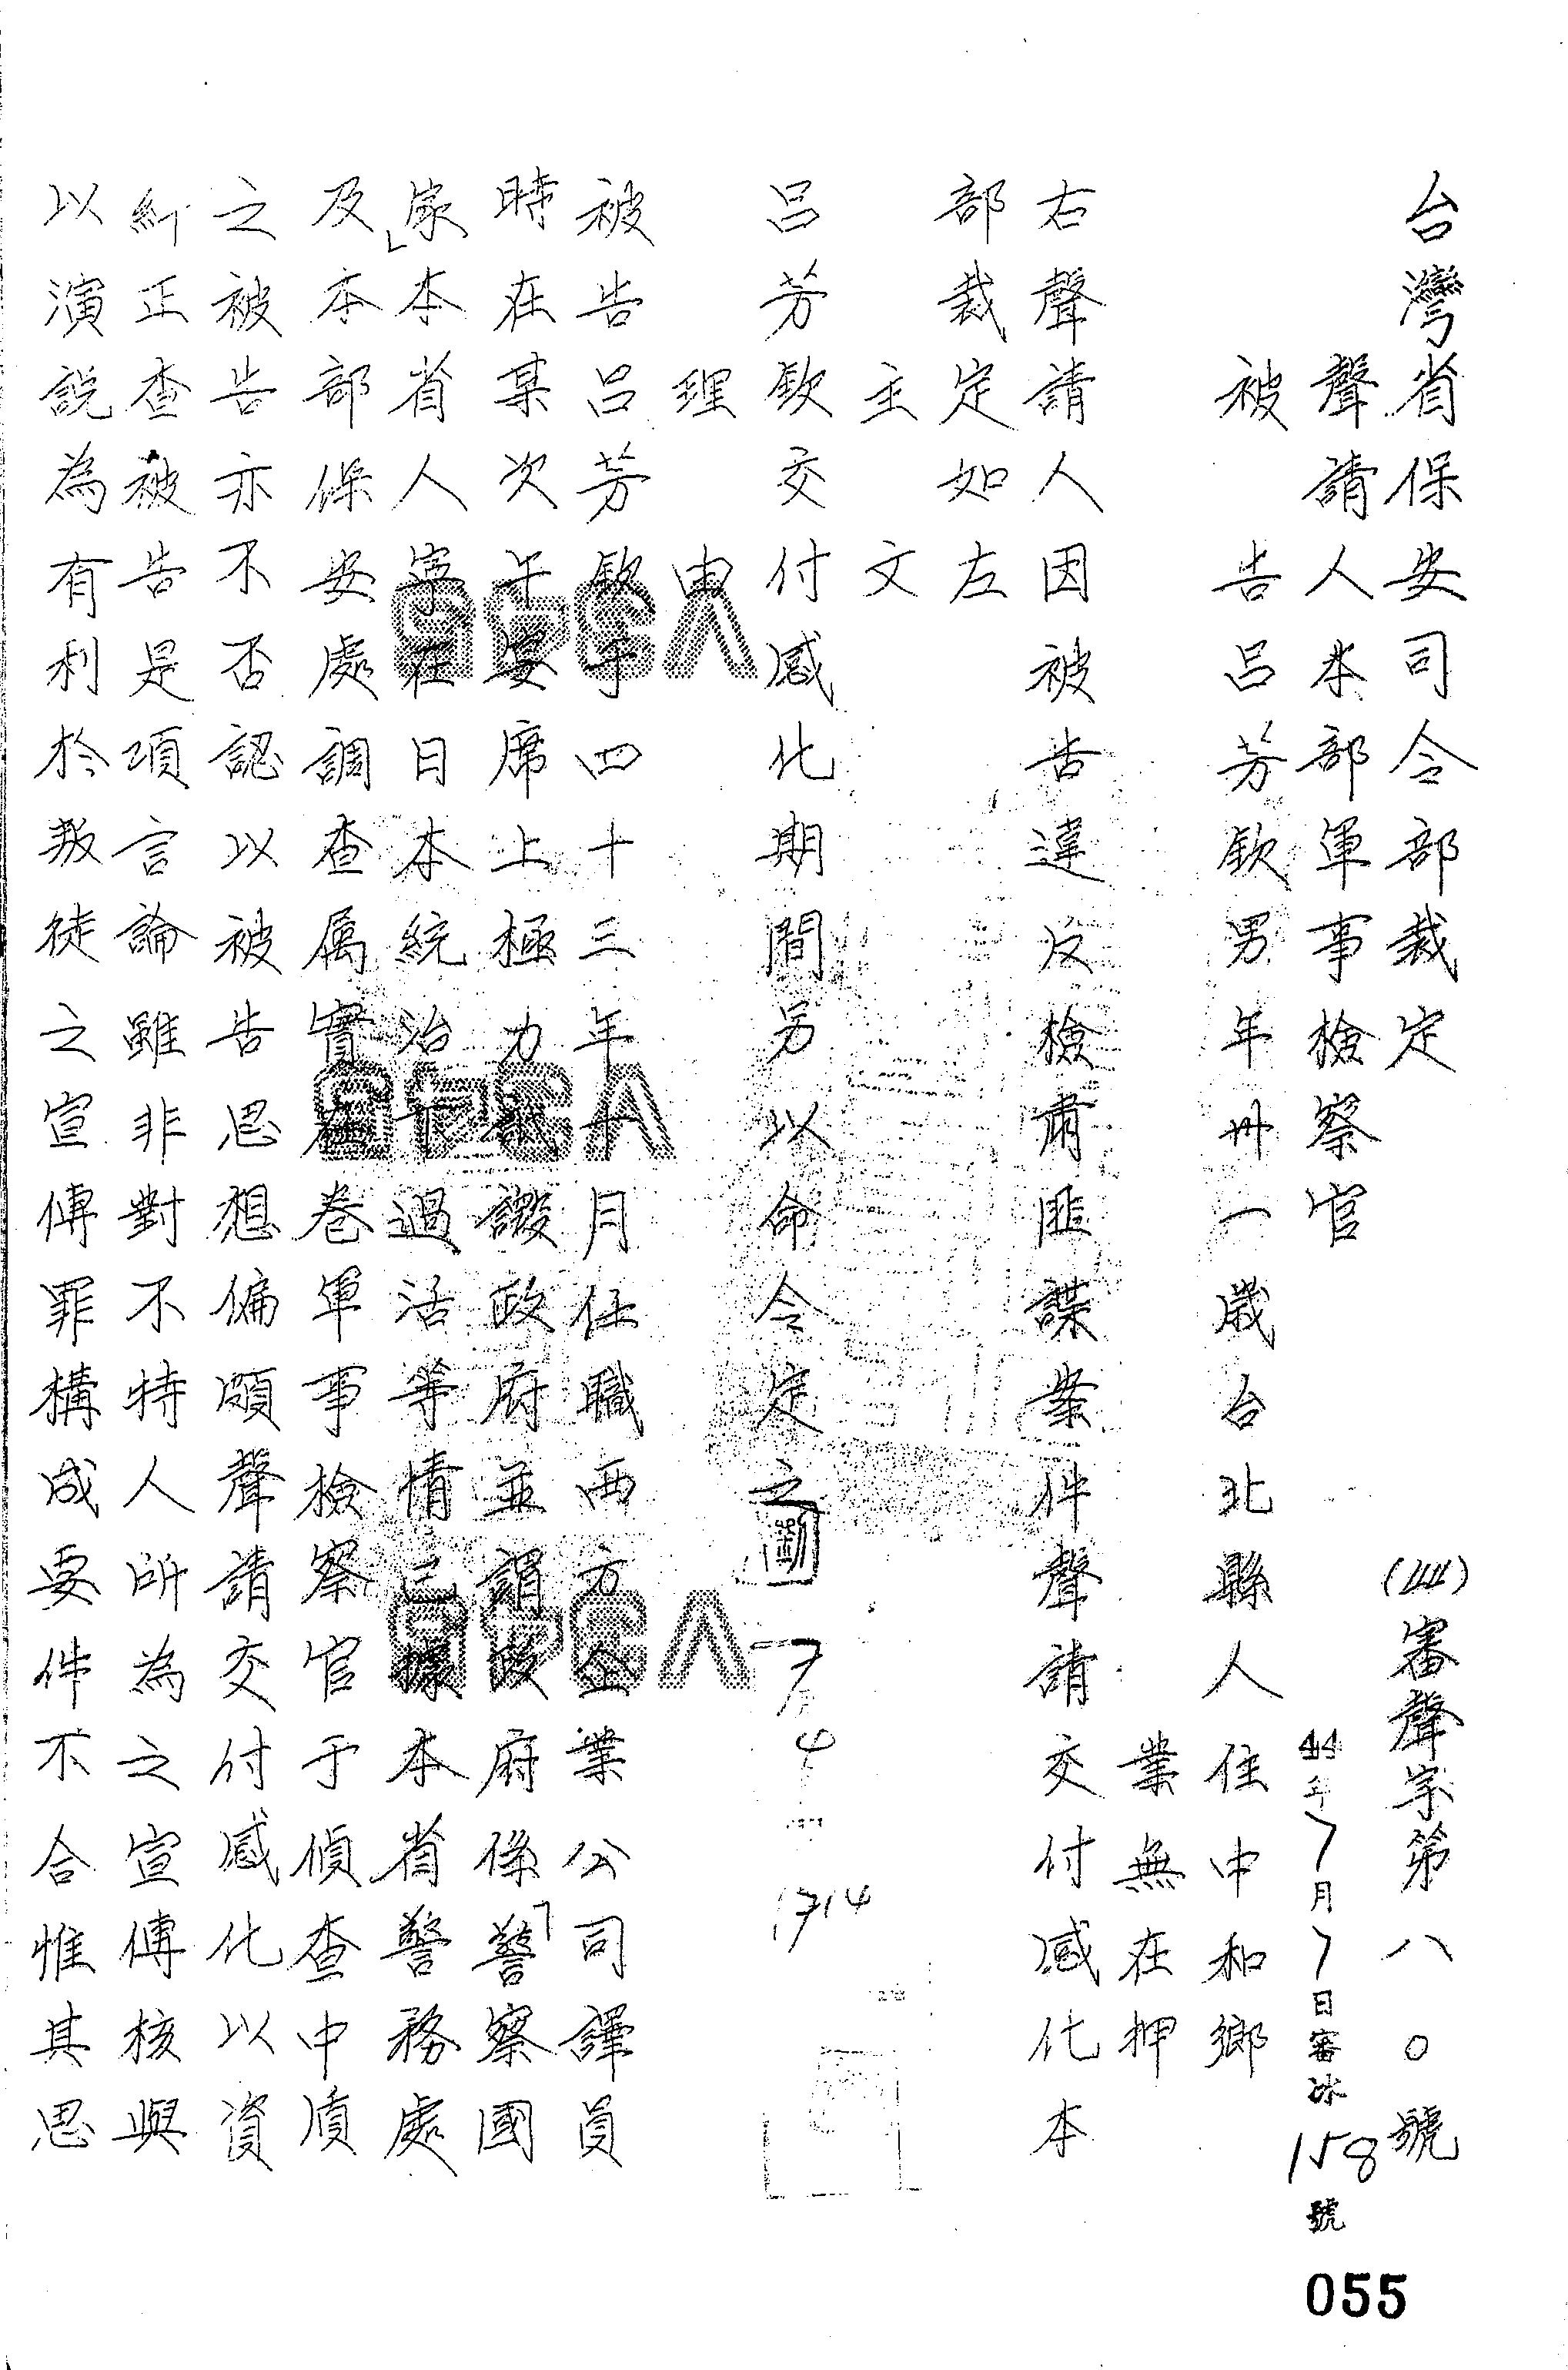 台灣省保安司令部裁定
(44)審聲字第八〇號
聲請人本部軍事檢察官
44年7月7日審冰158號
被告呂芳欽男年卅一歲台北縣人住中和鄉
業無在押
右聲請人因被告違反檢肅匪諜案件聲請交付感化本
部裁定如左
主文
呂芳欽交付感化期間另以命令定之
理由
被告呂芳欽于四十三年十月任職西方企業公司譯員
時在某次午宴席上極力譏謗政府並謂政府係「警察國
家」本省人寧在日本統治下過活等情已據本省警務處
及本部保安處調查屬實在卷軍事檢察官于偵查中質
之被告亦不否認以被告思想偏頗聲請交付感化以資
糾正查被告是項言論雖非對不特人所為之宣傳核與
以演說為有利於叛徒之宣傳罪構成要件不合惟其思
7 4
1714
055